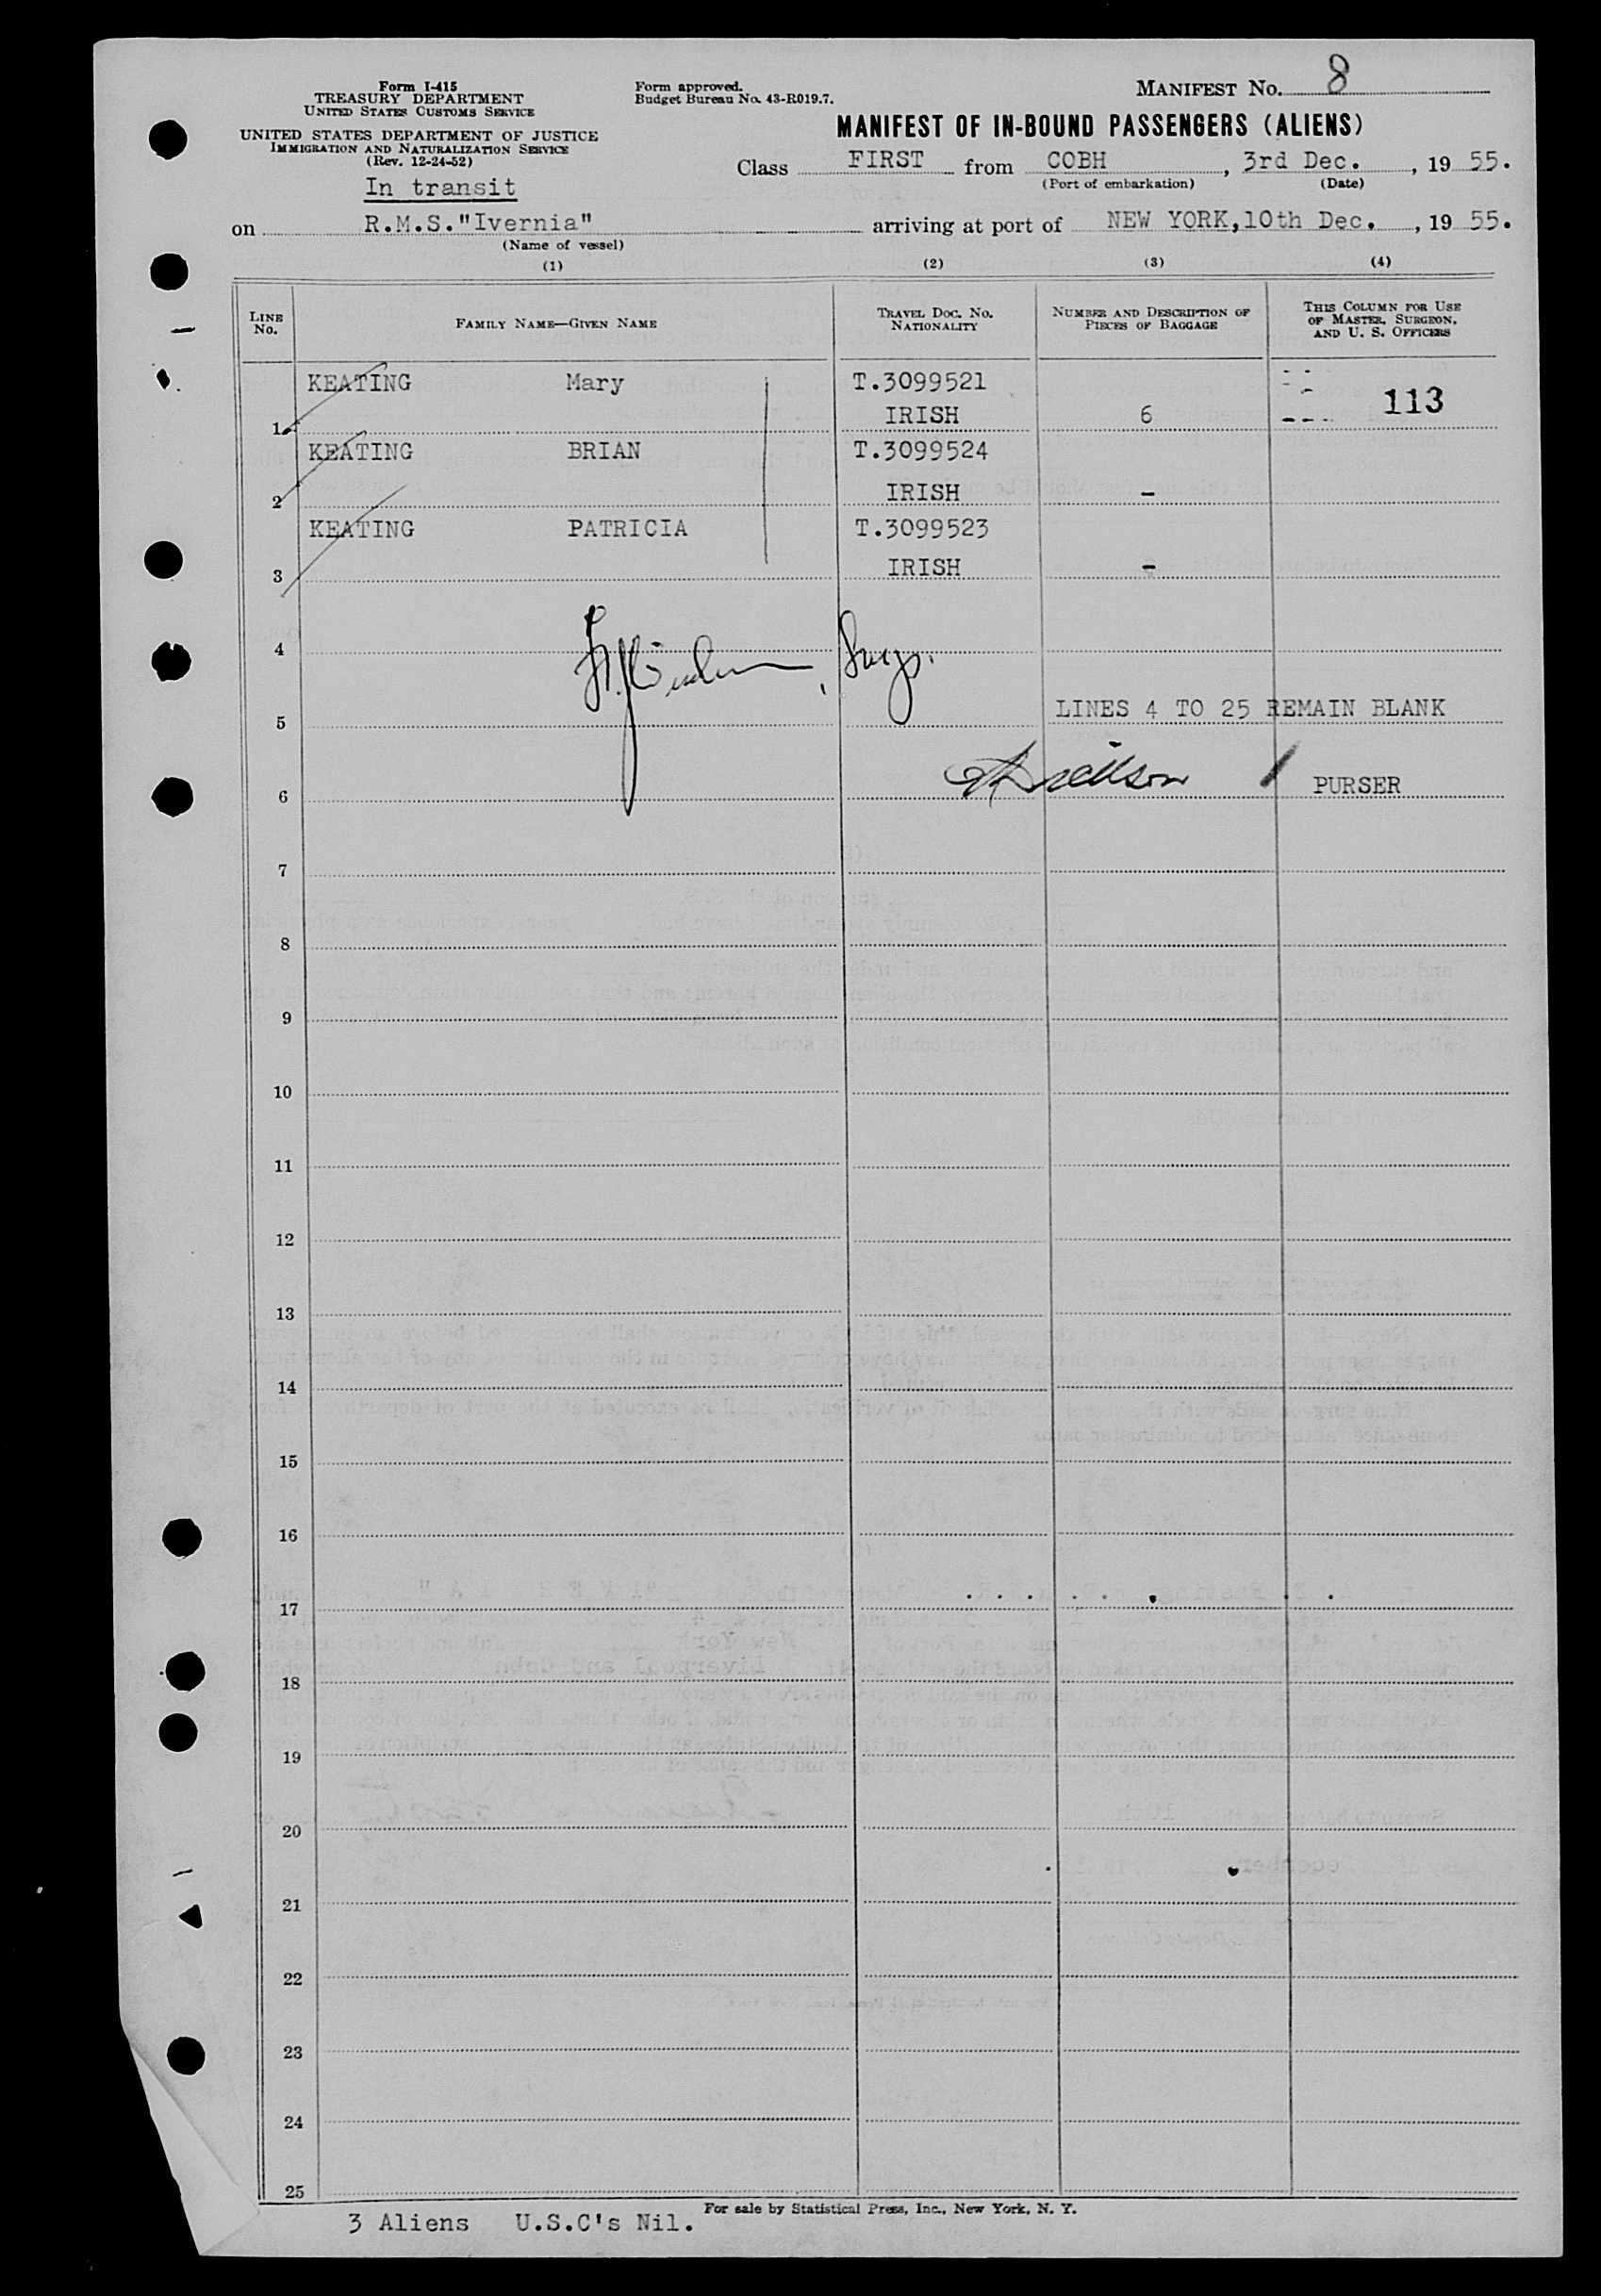 Form I-415
TREASURY DEPARTMENT
UNITED STATES CUSTOMS SERVICE
UNITED STATES DEPARTMENT OF JUSTICE
IMMIGRATION AND NATURALIZATION SERVICE
(Rev. 12-24-52)
In transit
Form approved.
Budget Bureau No. 43-R019.7.
MANIFEST No. 8
MANIFEST OF IN-BOUND PASSENGERS (ALIENS)
Class FIRST from COBH, 3rd Dec., 19 55.
(Port of embarkation) (Date)
on R.M.S."Ivernia" arriving at port of NEW YORK,10th Dec., 19 55.
(Name of vessel)
(1) (2) (3) (4)
LINE No. FAMILY NAME—GIVEN NAME TRAVEL DOC. NO. NATIONALITY NUMBER AND DESCRIPTION OF PIECES OF BAGGAGE THIS COLUMN FOR USE OF MASTER, SURGEON, AND U. S. OFFICERS
KEATING Mary T.3099521
1 IRISH 6 113
KEATING BRIAN T.3099524
2 IRISH -
KEATING PATRICIA T.3099523
3 IRISH -
4
5 LINES 4 TO 25 REMAIN BLANK
6 PURSER
7
8
9
10
11
12
13
14
15
16
17
18
19
20
21
22
23
24
25
For sale by Statistical Press, Inc., New York, N. Y.
3 Aliens U.S.C's Nil.